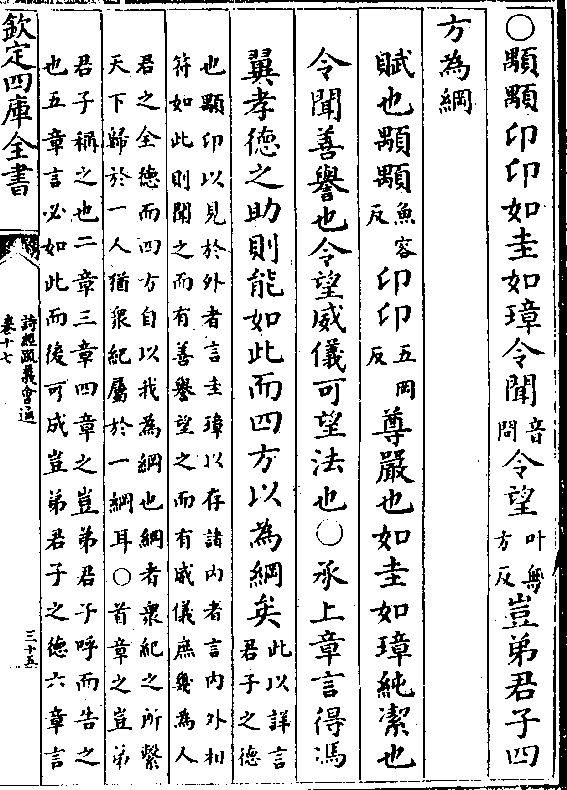 ○顒顒卬卬如圭如璋令聞音問令望叶無方反豈弟君子四
方為綱
賦也顒顒魚容反卬卬五岡反尊嚴也如圭如璋純潔也
令聞善譽也令望威儀可望法也○承上章言得馮
翼孝德之助則能如此而四方以為綱矣此以詳言君子之德
也顒卬以見於外者言圭璋以存諸内者言内外相
符如此則聞之而有善譽望之而有威儀庶幾為人
君之全德而四方自以我為綱也綱者衆紀之所繫
天下歸於一人猶衆紀屬於一綱耳○首章之豈弟
君子稱之也二章三章四章之豈弟君子呼而告之
也五章言必如此而後可成豈弟君子之德六章言
欽定四庫全書
詩經疏義會通
卷十七
三十五